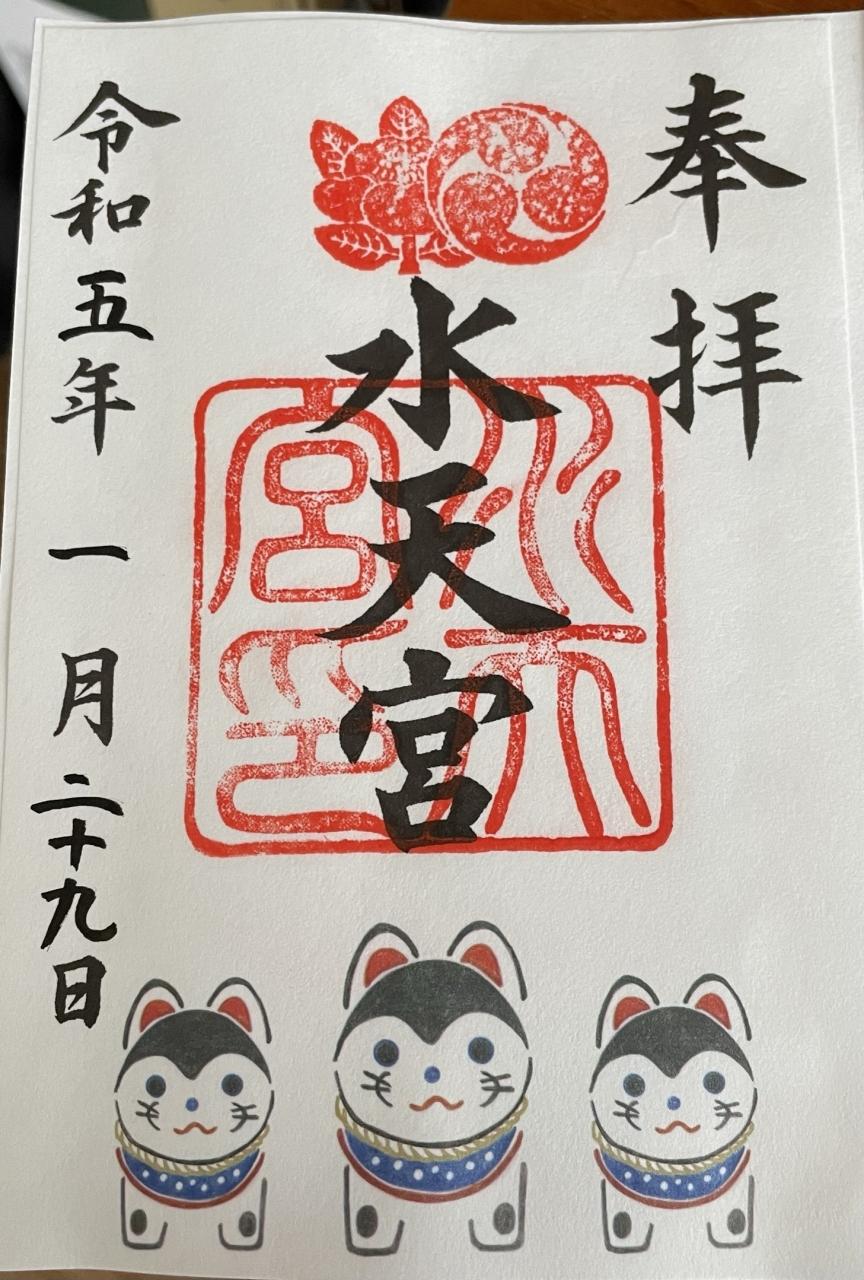 奉拝
水天宮
水天宮印
令和五年一月二十九日